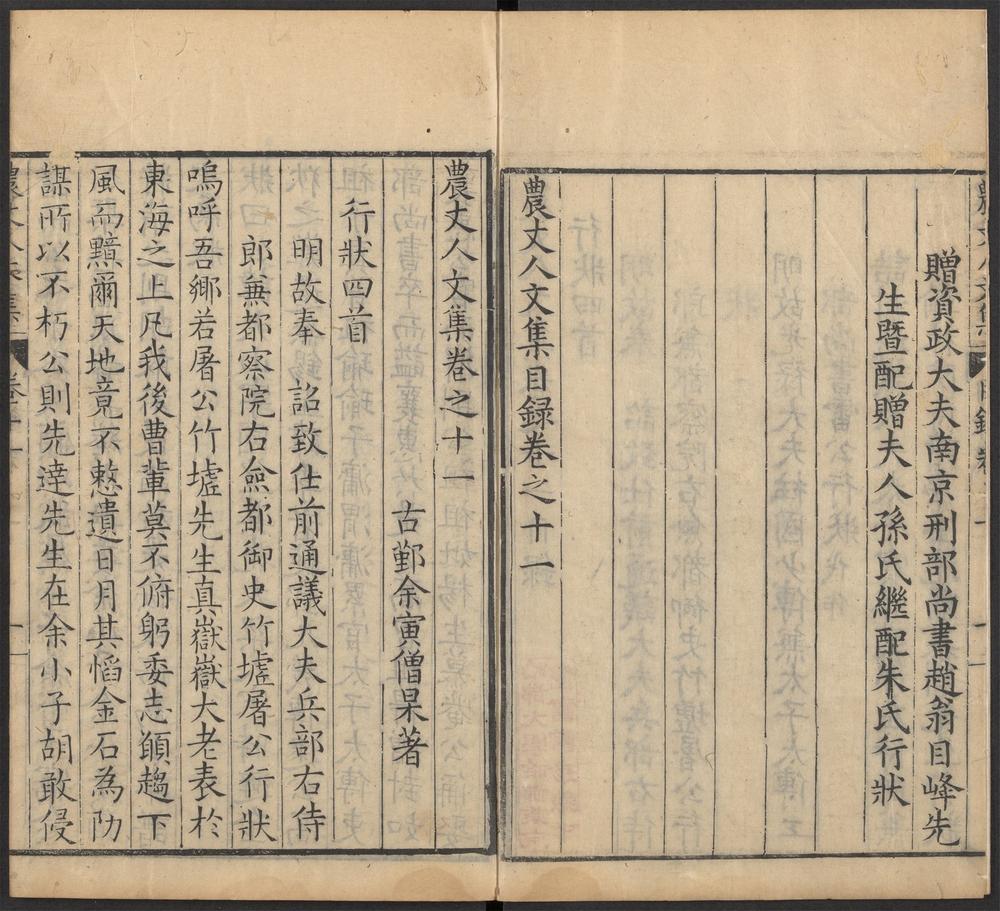 贈資政大夫南京刑部尚書趙翁目峰先
生暨配贈夫人孫氏繼配朱氏行狀
農丈人文集目録卷之十一
農丈人文集卷之十一
古鄞余寅僧杲著
行狀四首
明故奉　詔致仕前通議大夫兵部右侍
郎兼都察院右僉都御史竹墟屠公行狀
嗚呼吾鄉若屠公竹墟先生真嶽嶽大老表於
東海之上凡我後曹輩莫不俯躬委志願趨下
風而黯爾天地竟不慗遺日月其慆金石為泐
謀所以不朽公則先逹先生在余小子胡敢侵